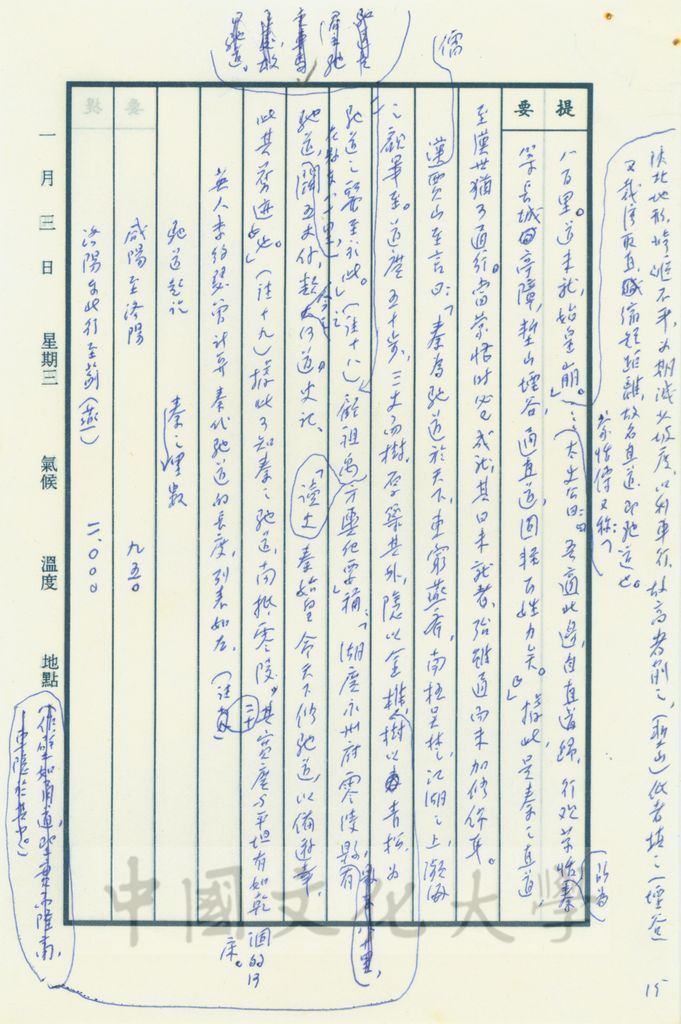 陝北地形崎嶇不平，為期減少坡度，以利車行，故高者削之，(塹山)低者填之(堙谷)
又截彎取直，縮短距離，故名直道，即馳道也。
蒙恬傳又稱：「
八百里。道未就，始皇崩。」太史公曰：「吾適北邊，自直道歸，行觀蒙恬
所為
秦築長城亭障，塹山堙谷，通直道，固輕百姓力矣。」據此，是秦之直道，
至漢世猶可通行。當蒙恬時必已成就，其曰未就者，殆雖通而未加修保耳。
儒
漢賈山至言曰：「秦為馳道於天下，東窮燕齊，南極吳楚，江湖之上，瀕海
之觀畢至。道廣五十步，三丈而樹，厚築其外，隱以金椎，樹以青松，為
馳道之麗至於此。」(註十八)顧祖禹「方輿紀要」稱：「湖廣永州府零陵縣有
馳道，闊五丈餘，
史記，
「讀史
秦始皇命天下修馳道，以備遊幸，
此其舊迹也。」(註十九)據此可知秦之馳道，南抵零陵，其寬度與平坦有如乾涸的河
床。
英人李約瑟曾計算秦代馳道的長度，列表如左。(註二十)
馳道起訖　秦之里數
咸陽至洛陽　九五〇
洛陽東北行至薊(燕)　二、〇〇〇
提要
一月三日　星期三　氣候　溫度　地點
中國文化大學
15